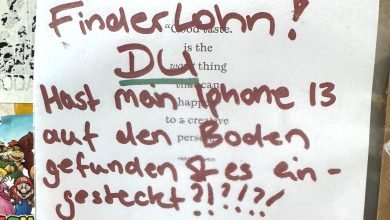 Finderlohn!
"Good taste.
is the
worst thing
DU
that can
happen
to a creative
person"
Hast mein iphone 13
auf den Boden
gefunden & es ein-
gesteckt?!?!?!